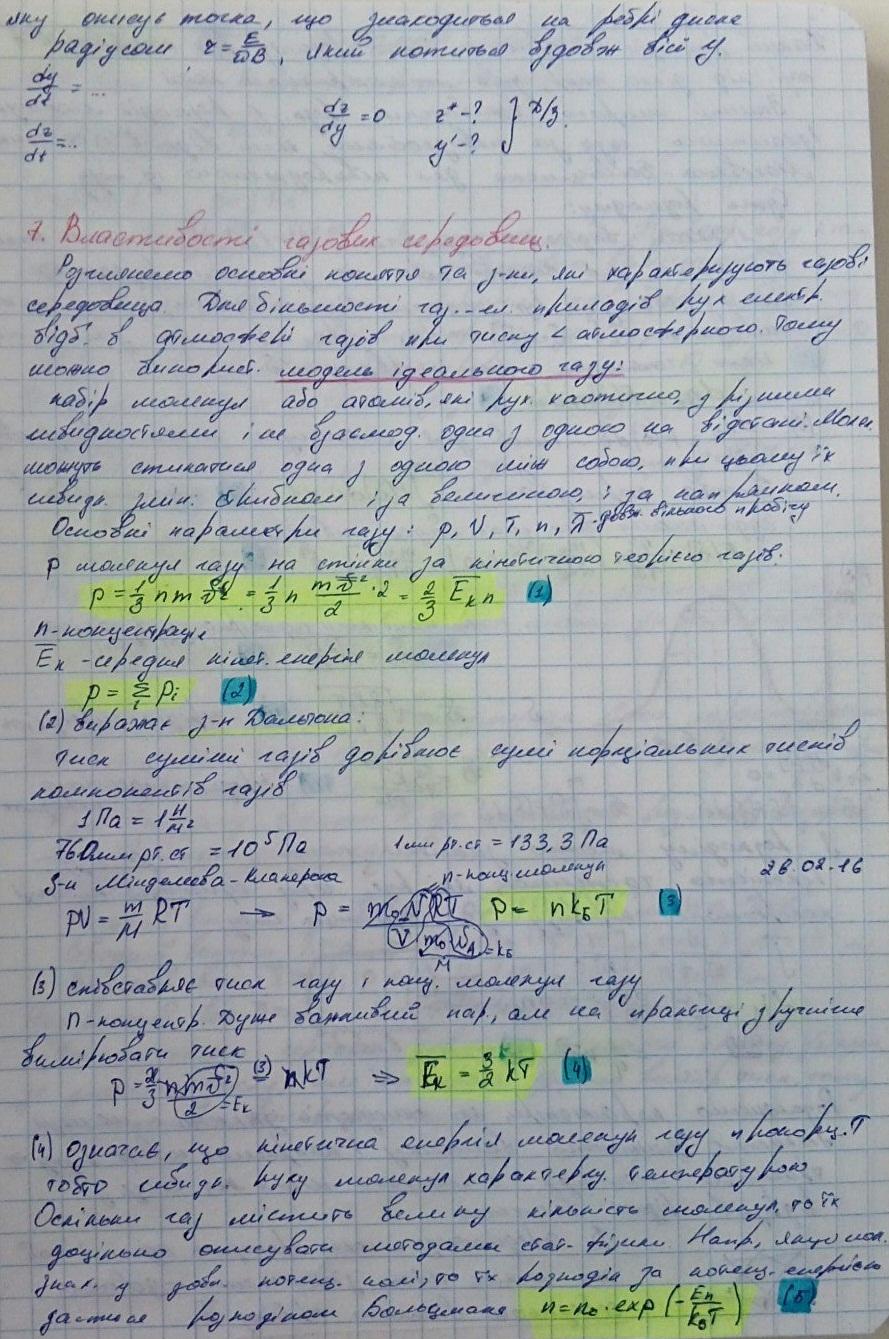 яку описує точка, що знаходиться на ребрі диска
радіусом r = E/ωB, який котиться вздовж вісі y.
dy/dt = ...
dz/dt = ...
dz/dy = 0 z* - ? y' - ? } Д/з.
7. Властивості газових середовищ.
Розглянемо основні поняття та з-ни, які характеризують газові
середовища. Для більшості газ.-ел. приладів рух електр.
відб. в атмосфері газів при тиску < атмосферного. Тому
можно використ. модель ідеального газу:
набір молекул або атомів, які рух. хаотично, з різними
швидкостями і не взаємод. одна з одною на відстані. Молек.
можуть стикатися одна з одною між собою, при цьому їх
швидк. змін. стрибком і за величиною, і за напрямком.
Основні параметри газу: p, V, T, n, λ̅ - довж. вільного пробігу
P молекул газу на стінки за кінетичною теорією газів.
P = 1/3 n m v̅² = 1/3 n m v̅²/2 · 2 = 2/3 E̅к n (1)
n - концентрація
E̅к - середня кінет. енергія молекул
P = Σi Pi (2)
(2) виражає з-н Дальтона:
тиск суміші газів дорівнює сумі порціальних тисків
компонентів газів
1 Па = 1 Н/м²
760 мм рт. ст = 10⁵ Па 1 мм рт. ст = 133,3 Па
26.02.16
З-н Мінделєєва-Клаперона n - конц. молекул
PV = m/M RT → P = m₀ N RT / V m₀ NA = kБ P = n kБ T (3)
M
(3) співставляє тиск газу і конц. молекул газу
n - концентр. Дуже важливий пар., але на практиці зручніше
вимірювати тиск
P = 2/3 n m v̅²/2 = Eк (3) = n k T ⇒ E̅к = 3/2 kT (4)
(4) означає, що кінетична енергія молекул газу пропорц. T
тобто швидк. руху молекул характериз. температурою
Оскільки газ містить велику кількість молекул, то їх
доцільно описувати методами стат. фізики Напр, якщо мол.
знах. у потенц. полі, то їх розподіл за потенц. енергією
дається розподілом Больцмана n = n₀ · exp (- Eп / kБT) (5)